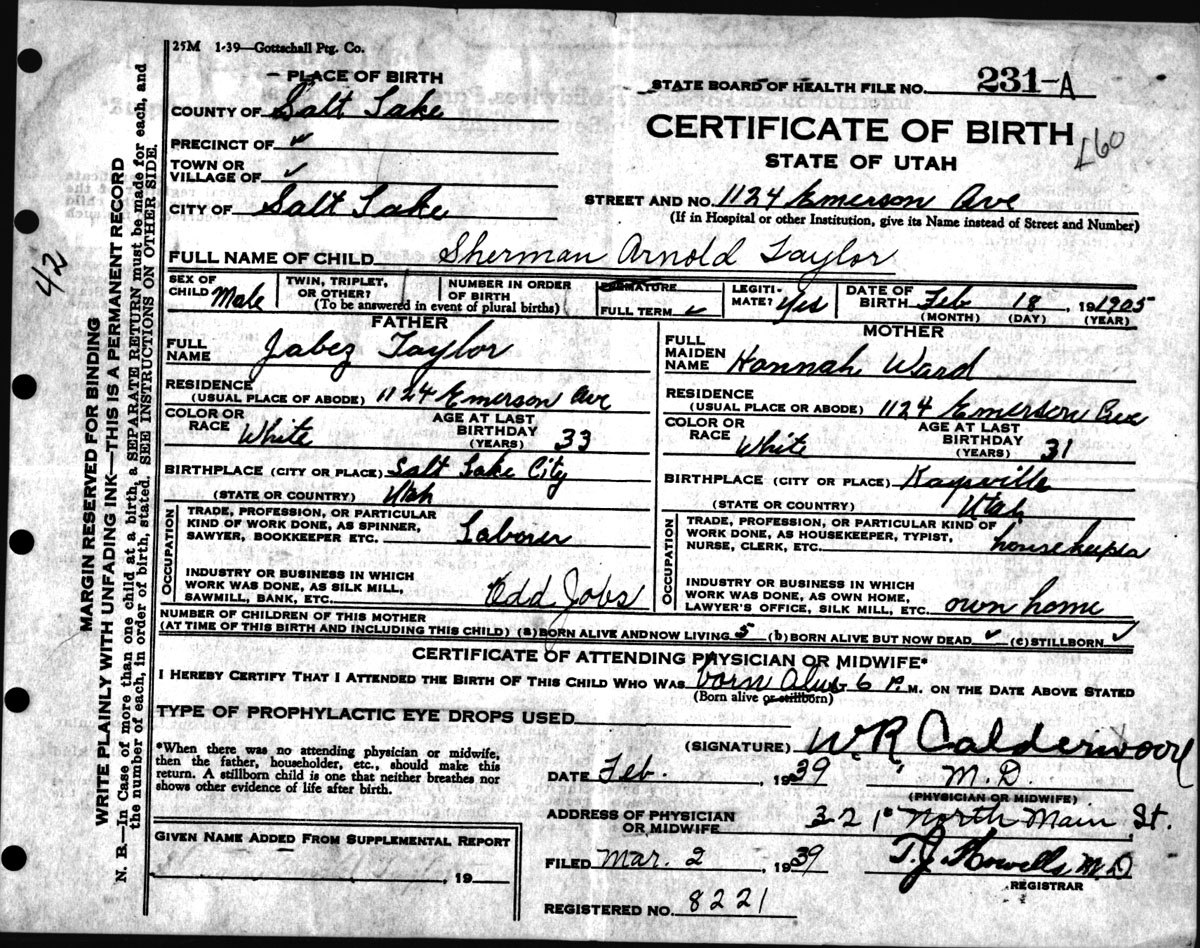 25M 1-39—Gottschall Ptg. Co.
PLACE OF BIRTH
STATE BOARD OF HEALTH FILE NO. 231-A
COUNTY OF Salt Lake
CERTIFICATE OF BIRTH
L60
PRECINCT OF ✓
STATE OF UTAH
TOWN OR
VILLAGE OF ✓
CITY OF Salt Lake
STREET AND NO. 1124 Emerson Ave
(If in Hospital or other Institution, give its Name instead of Street and Number)
FULL NAME OF CHILD Sherman Arnold Taylor
SEX OF CHILD Male
TWIN, TRIPLET, OR OTHER?
NUMBER IN ORDER OF BIRTH
(To be answered in event of plural births)
PREMATURE
FULL TERM ✓
LEGITIMATE? Yes
DATE OF BIRTH Feb 18, 191905
(MONTH) (DAY) (YEAR)
FATHER
FULL NAME Jabez Taylor
RESIDENCE
(USUAL PLACE OF ABODE) 1124 Emerson Ave
COLOR OR RACE White
AGE AT LAST BIRTHDAY (YEARS) 33
BIRTHPLACE (CITY OR PLACE) Salt Lake City
(STATE OR COUNTRY) Utah
OCCUPATION
TRADE, PROFESSION, OR PARTICULAR
KIND OF WORK DONE, AS SPINNER,
SAWYER, BOOKKEEPER ETC. Laborer
INDUSTRY OR BUSINESS IN WHICH
WORK WAS DONE, AS SILK MILL,
SAWMILL, BANK, ETC. Odd Jobs
MOTHER
FULL MAIDEN NAME Hannah Ward
RESIDENCE
(USUAL PLACE OR ABODE) 1124 Emerson Ave
COLOR OR RACE White
AGE AT LAST BIRTHDAY (YEARS) 31
BIRTHPLACE (CITY OR PLACE) Kaysville
(STATE OR COUNTRY) Utah
OCCUPATION
TRADE, PROFESSION, OR PARTICULAR KIND OF
WORK DONE, AS HOUSEKEEPER, TYPIST,
NURSE, CLERK, ETC. housekeeper
INDUSTRY OR BUSINESS IN WHICH
WORK WAS DONE, AS OWN HOME,
LAWYER'S OFFICE, SILK MILL, ETC. own home
NUMBER OF CHILDREN OF THIS MOTHER
(AT TIME OF THIS BIRTH AND INCLUDING THIS CHILD) (a) BORN ALIVE AND NOW LIVING 5 (b) BORN ALIVE BUT NOW DEAD ✓ (c) STILLBORN ✓
CERTIFICATE OF ATTENDING PHYSICIAN OR MIDWIFE*
I HEREBY CERTIFY THAT I ATTENDED THE BIRTH OF THIS CHILD WHO WAS born alive 6 P. M. ON THE DATE ABOVE STATED
(Born alive or stillborn)
TYPE OF PROPHYLACTIC EYE DROPS USED
*When there was no attending physician or midwife,
then the father, householder, etc., should make this
return. A stillborn child is one that neither breathes nor
shows other evidence of life after birth.
(SIGNATURE) W. R. Calderwood
DATE Feb. , 1939 M.D.
(PHYSICIAN OR MIDWIFE)
ADDRESS OF PHYSICIAN
OR MIDWIFE 321 North Main St.
GIVEN NAME ADDED FROM SUPPLEMENTAL REPORT
, 19
FILED Mar. 2 , 1939 T. J. Howells M D
REGISTRAR
REGISTERED NO. 8221
42
MARGIN RESERVED FOR BINDING
WRITE PLAINLY WITH UNFADING INK—THIS IS A PERMANENT RECORD
N. B.—In Case of more than one child at a birth, a SEPARATE RETURN must be made for each, and
the number of each, in order of birth, stated. SEE INSTRUCTIONS ON OTHER SIDE.